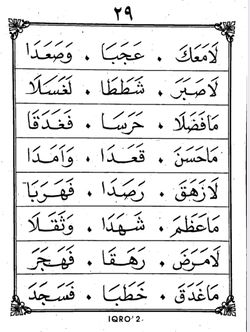 ٢٩
لَامَعَكَ . عَجَبَا . وَصَعَدَا
لَاصَبَرَ . شَطَطَا . لَغَسَلَا
مَافَضَلَا . حَرَسَا . فَغَدَقَا
مَاحَسَنَ . قَعَدَا . وَاَمَدَا
لَازَهَقَ . رَصَدَا . فَهَرَبَا
مَاعَظَمَ . شَهَدَا . وَثَقَلَا
لَامَرَضَ . رَهَقَا . فَهَجَرَ
مَاغَدَقَ . خَطَبَا . فَسَجَدَ
IQRO' 2